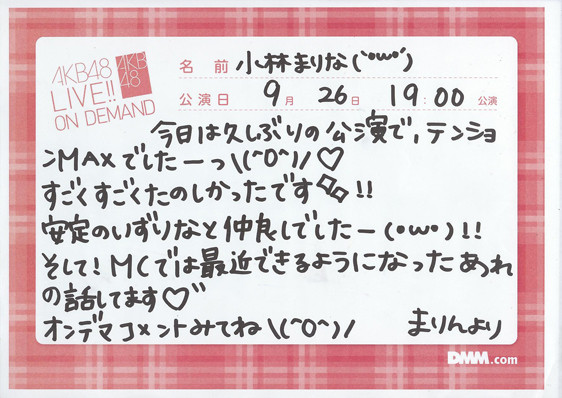 AKB48
LIVE!!
ON DEMAND
AKB
48
名 前 小林まりな(`•ω•´)
公演日 9月 26日 19:00 公演
今日は久しぶりの公演で、テンショ
ンMAXでしたーっ\(^O^)/♡
すごくすごくたのしかったです!!
安定のいずりなと仲良しでしたー(•ω•)!!
そして!MCでは最近できるようになったあつれ
の話してます♡"
オンデマコメントみてね\(^O^)/ まりんより
DMM.com